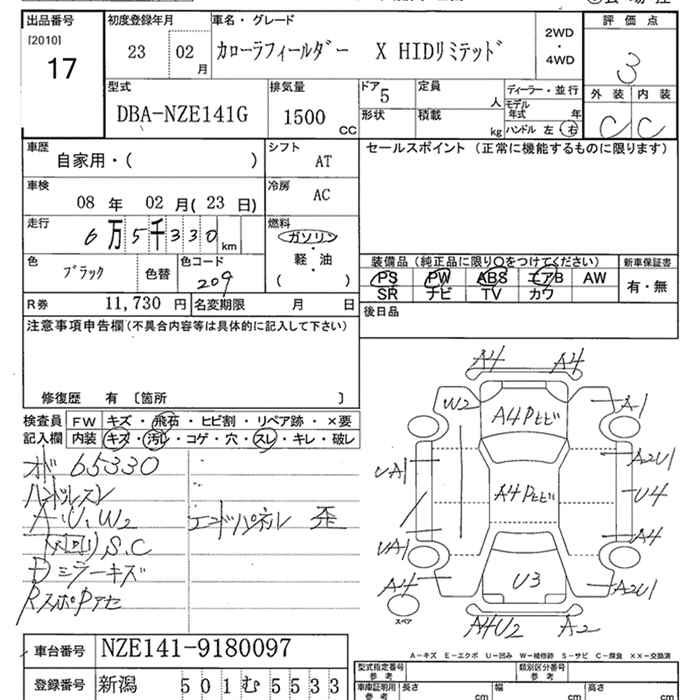 出品番号 初度登録年月 車名・グレード 評価点
[2010] 17
23 02 月
カローラフィールダー X HIDリミテッド
2WD・4WD
3
外装 内装
C C
型式 排気量 ドア 定員 ディーラー・並行
DBA-NZE141G 1500 CC 5 人
モデル年式 年
形状 積載 kg ハンドル 左 右
車歴 シフト セールスポイント (正常に機能するものに限ります)
自家用・( ) AT
車検 冷房
08 年 02 月(23 日) AC
走行 燃料
6万5千330 km ガソリン・軽・油 ( )
色 色コード
ブラック 色替 209
装備品 (純正品に限り○をつけてください) 新車保証書
PS PW ABS エアB AW 有・無
SR ナビ TV カワ
R券 11,730 円 名変期限 月 日
後日品
注意事項申告欄(不具合内容等は具体的に記入して下さい)
修復歴 有 〔箇所 〕
検査員記入欄
FW キズ・飛石・ヒビ割・リペア跡・×要
内装 キズ・汚レ・コゲ・穴・スレ・キレ・破レ
65330
ハンドルスレ
A.U.W2
エンドパネル 歪
S.C
ミラーキズ
A4 A4
W2 A4 Pヒビ A1
UA1 A2U1
A4 Pヒビ U4
UA1 A4
A4 U3 A2U1
スペア A4U2 A2
A-キズ E-エクボ U-凹み W-補修跡 S-サビ C-腐食 ××-交換済
車台番号 NZE141-9180097
登録番号 新潟 501む5533
型式指定番号 参考 類別区分番号 参考
車庫証明用 参考 長さ cm 幅 cm 高さ cm